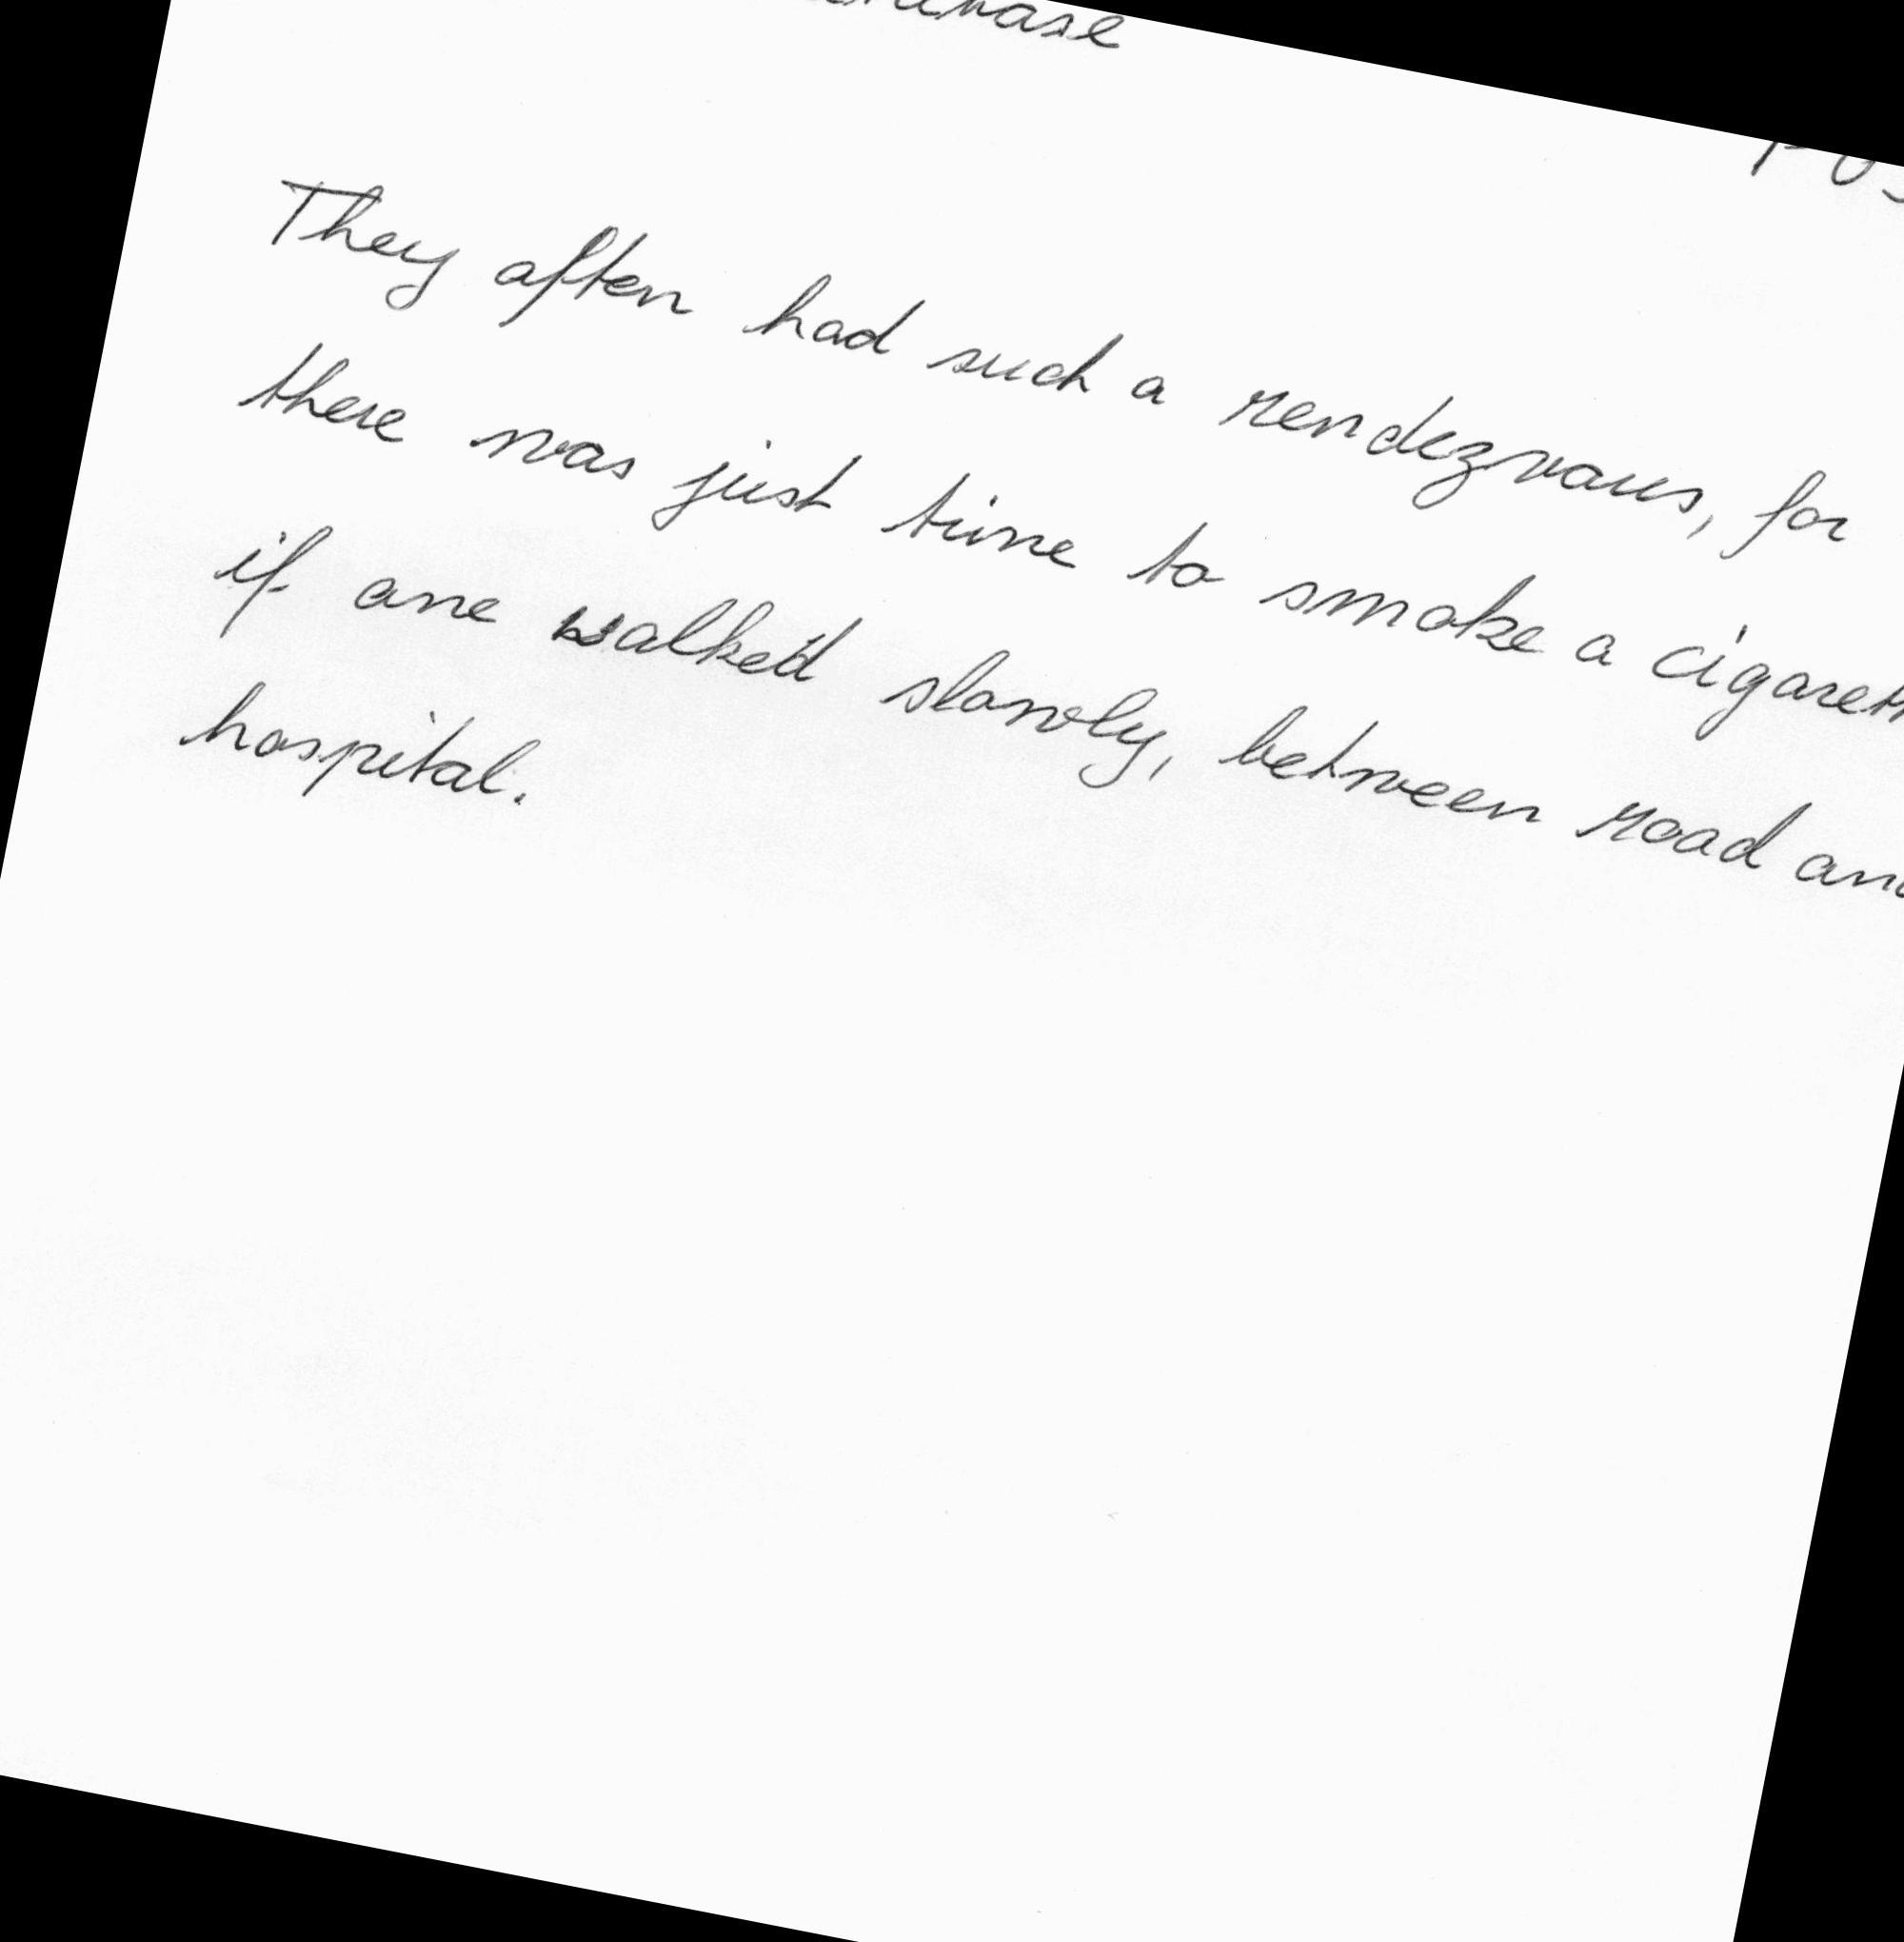 They often had such a rendezvous, for
there was just time to smoke a
if one walked slowly, between road
hospital.